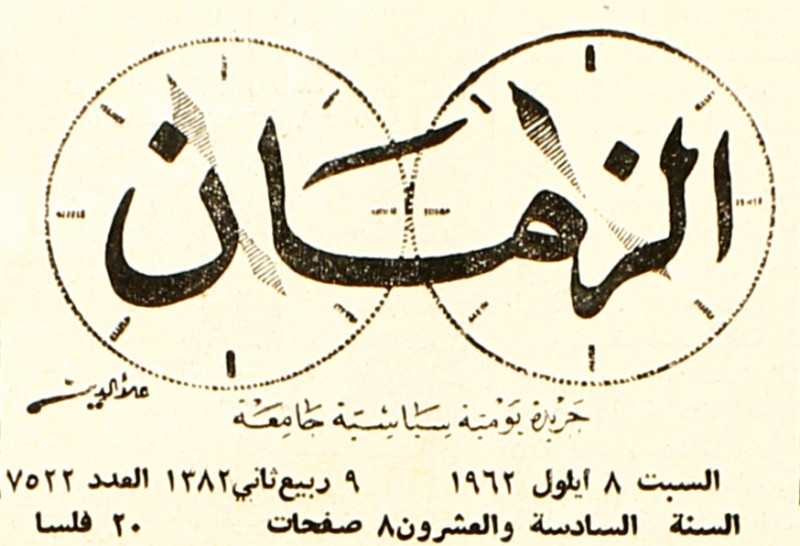 الزمان
علاء الدين
جريدة يومية سياسية جامعة
السبت ٨ ايلول ١٩٦٢ ٩ ربيع ثاني ١٣٨٢ العدد ٧٥٢٢
السنة السادسة والعشرون ٨ صفحات ٢٠ فلسا